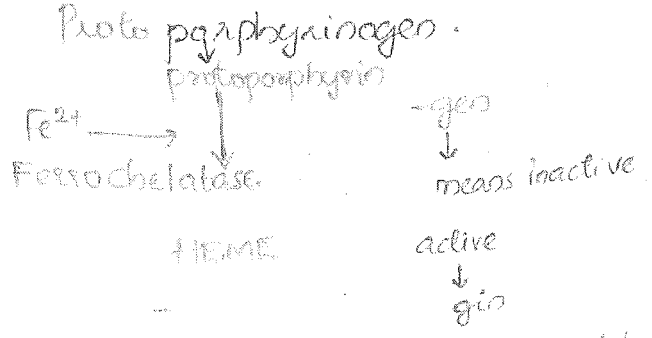 Proto porphyrinogen.
protoporphyrin
-gen
Fe2+
Ferrochelatase.
means inactive
HEME
active
gin